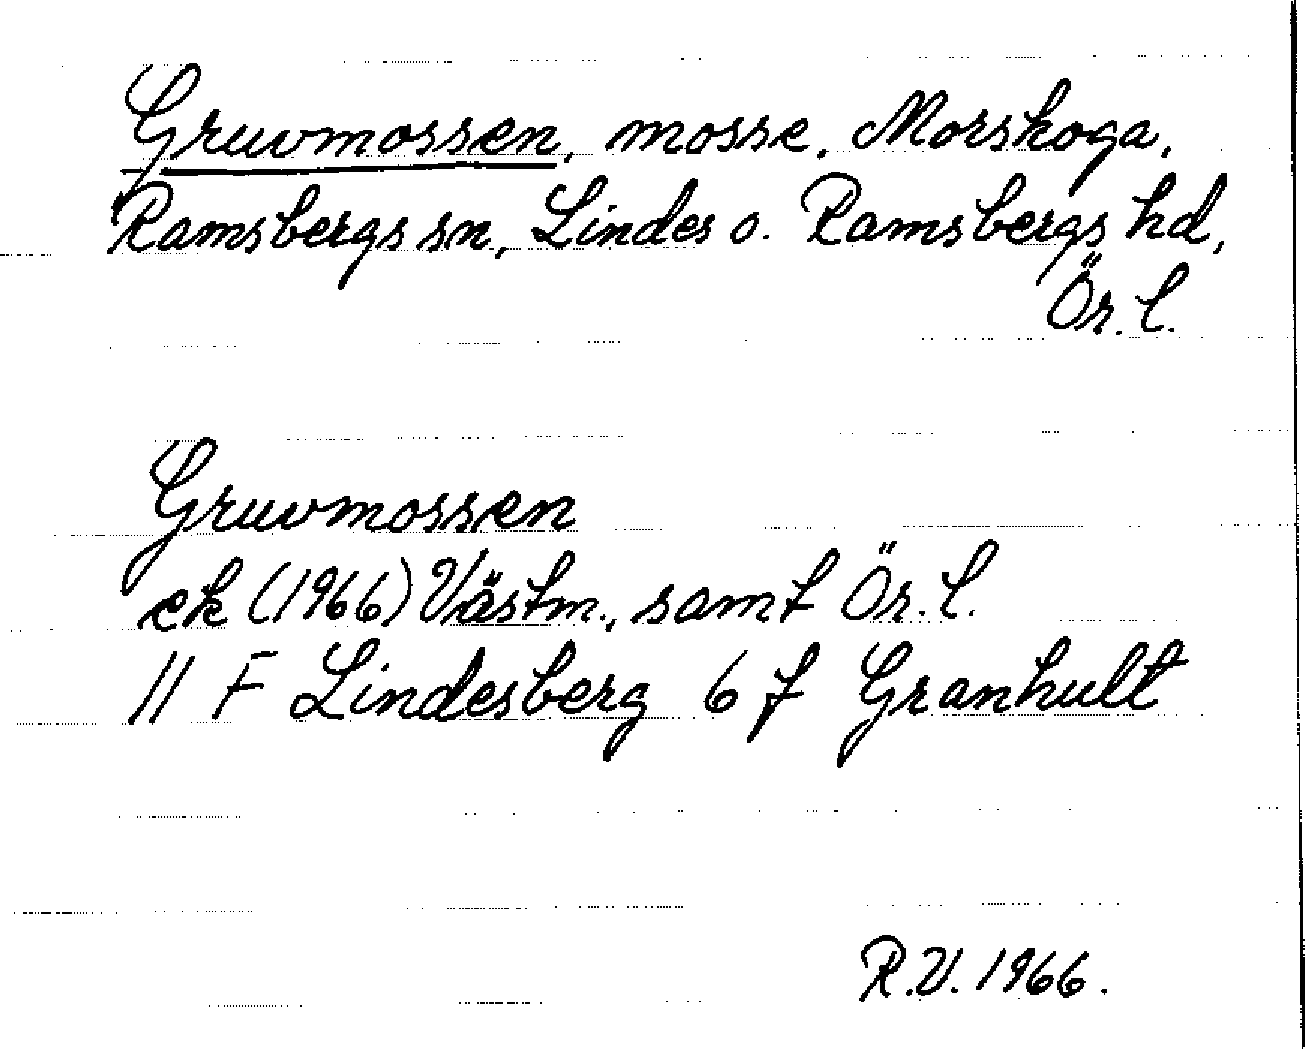 Gruvmossen, mosse, Morskoga,
Ramsbergs sn, Lindes o. Ramsbergs hd,
Ör. l.
Gruvmossen
ek (1966) Västm., samt Ör. l.
11 F Lindesberg 6 f Granhult
R.V. 1966.